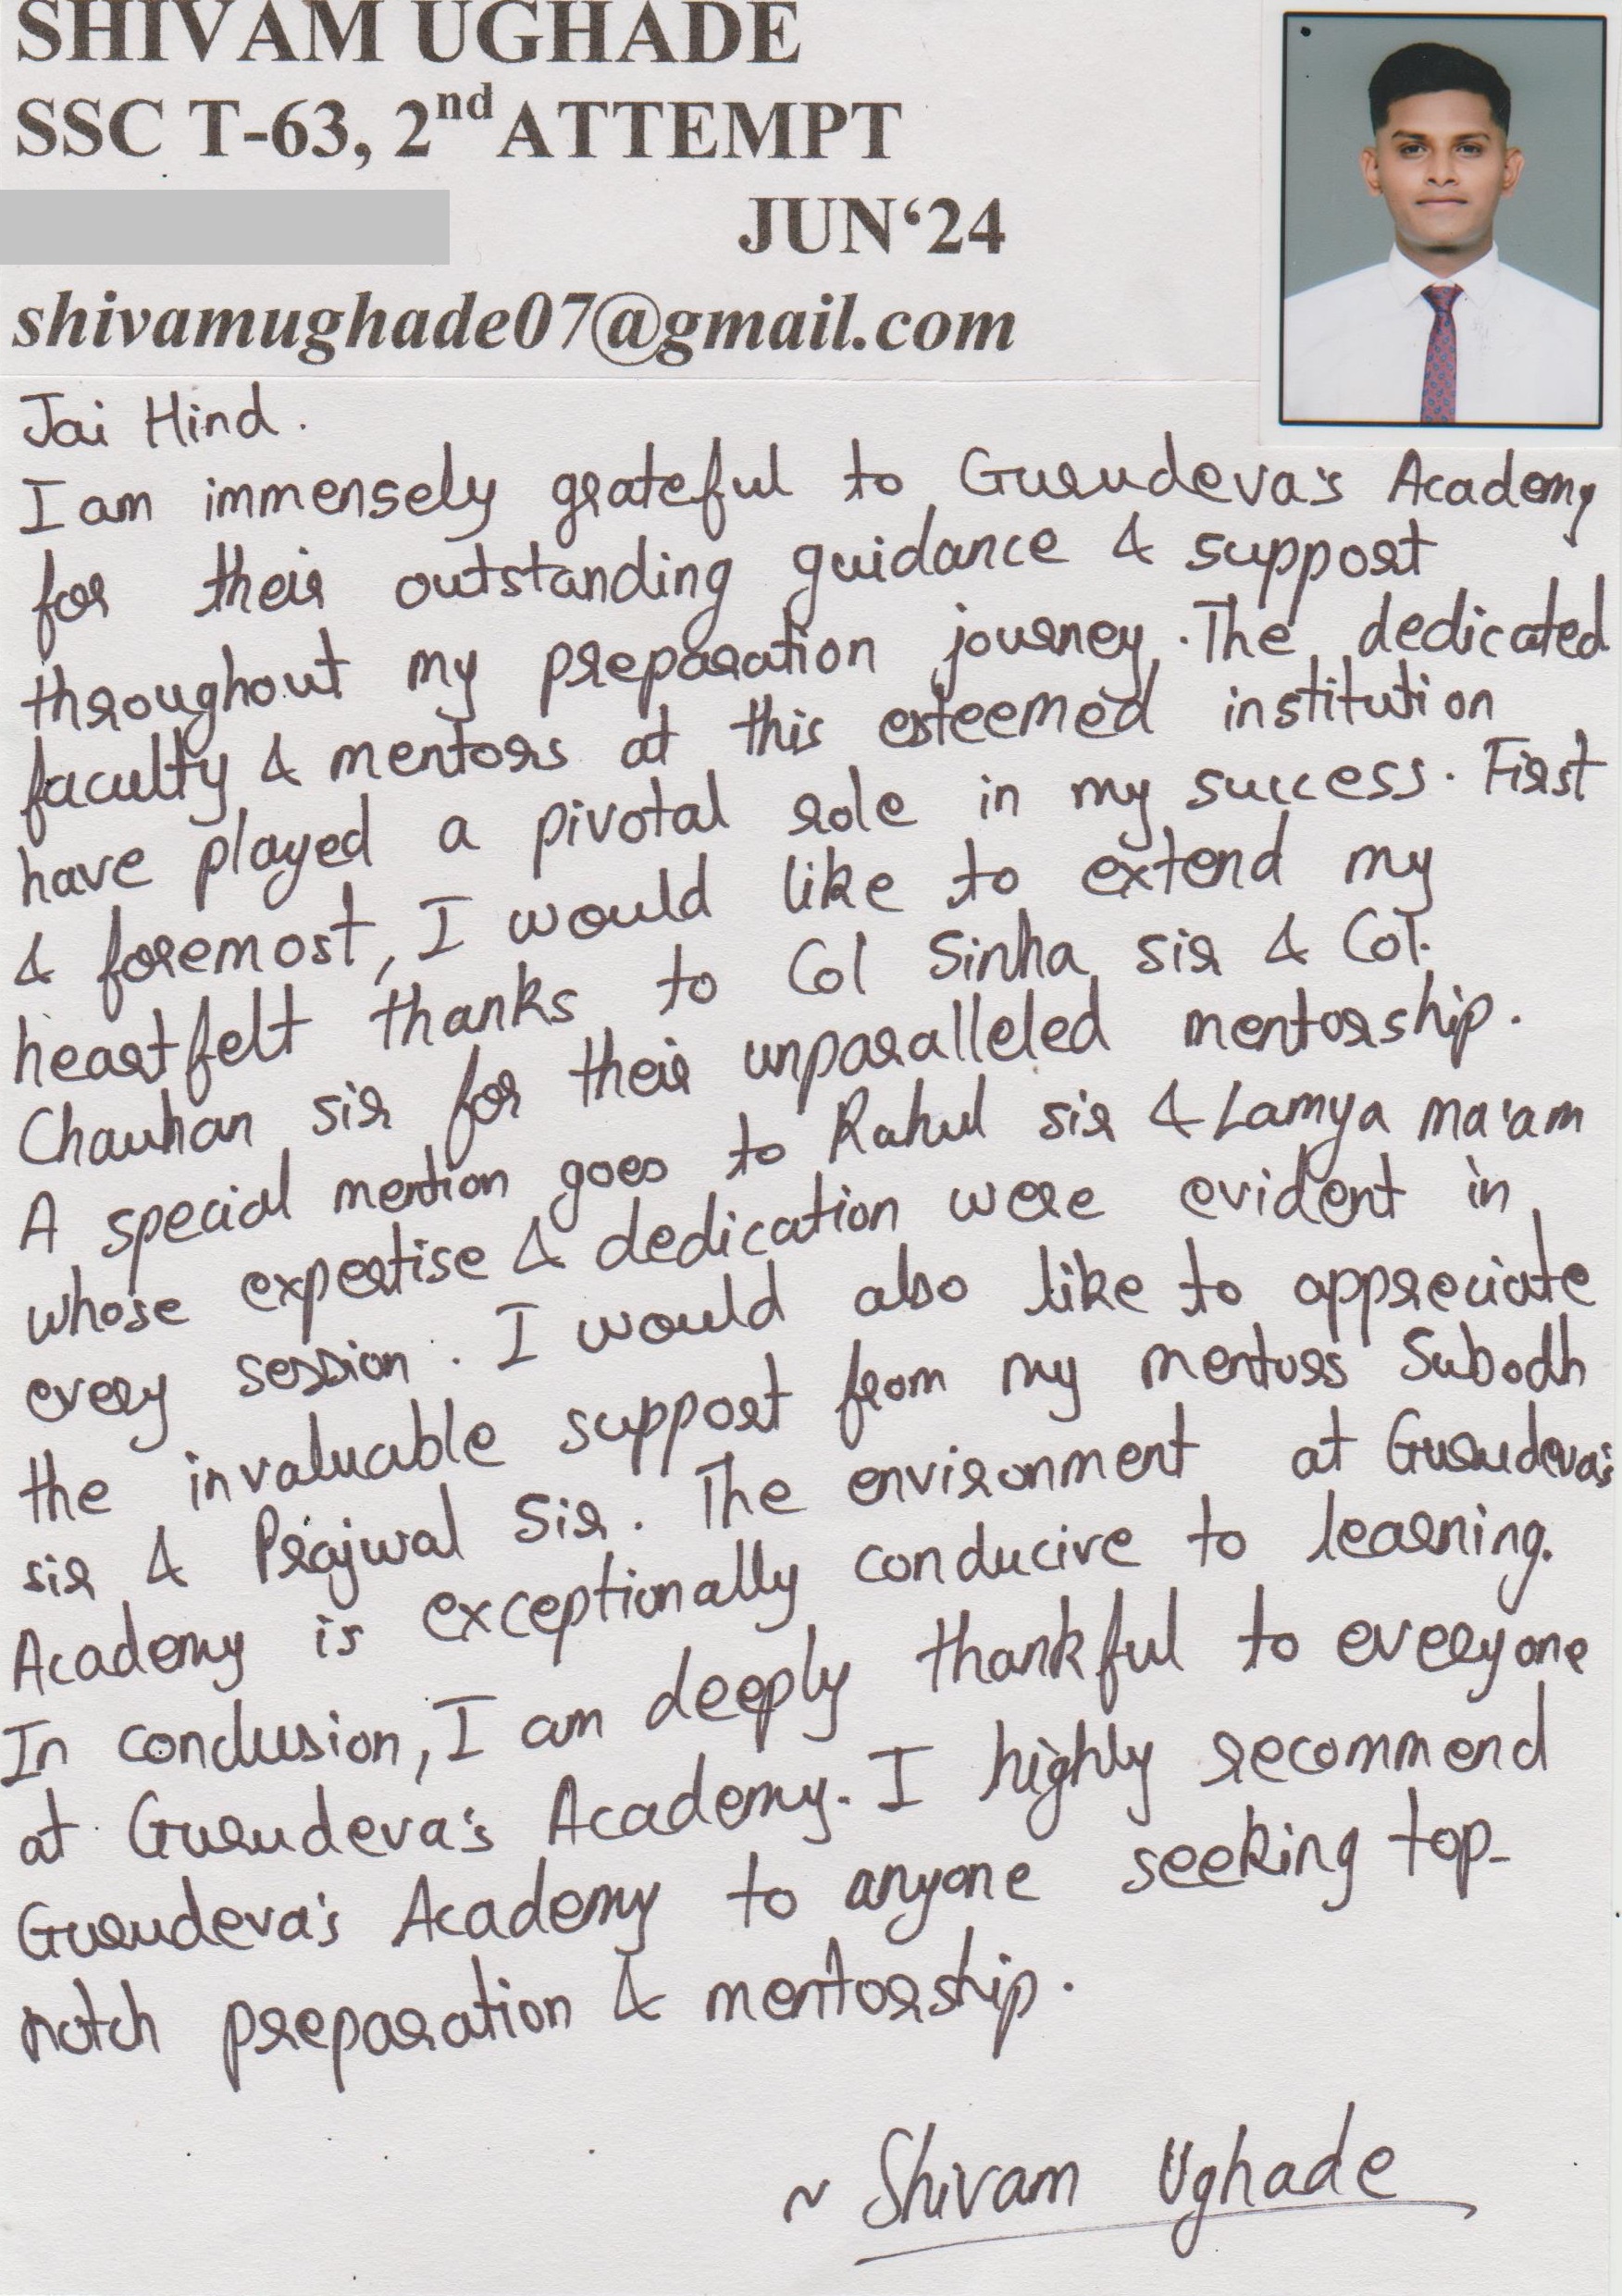 SHIVAM UGHADE
SSC T-63, 2nd ATTEMPT
JUN‘24
shivamughade07@gmail.com
Jai Hind.
I am immensely grateful to Gurudeva's Academy
for their outstanding guidance & support
throughout my preparation journey. The dedicated
faculty & mentors at this esteemed institution
have played a pivotal role in my success. First
& foremost, I would like to extend my
heartfelt thanks to Col Sinha sir & Col.
Chauhan sir for their unparalleled mentorship.
A special mention goes to Rahul sir & Lamya ma'am
whose expertise & dedication were evident in
every session. I would also like to appreciate
the invaluable support from my mentors Subodh
sir & Prajwal Sir. The environment at Gurudeva's
Academy is exceptionally conducive to learning.
In conclusion, I am deeply thankful to everyone
at Gurudeva's Academy. I highly recommend
Gurudeva's Academy to anyone seeking top-
notch preparation & mentorship.
~ Shivam Ughade